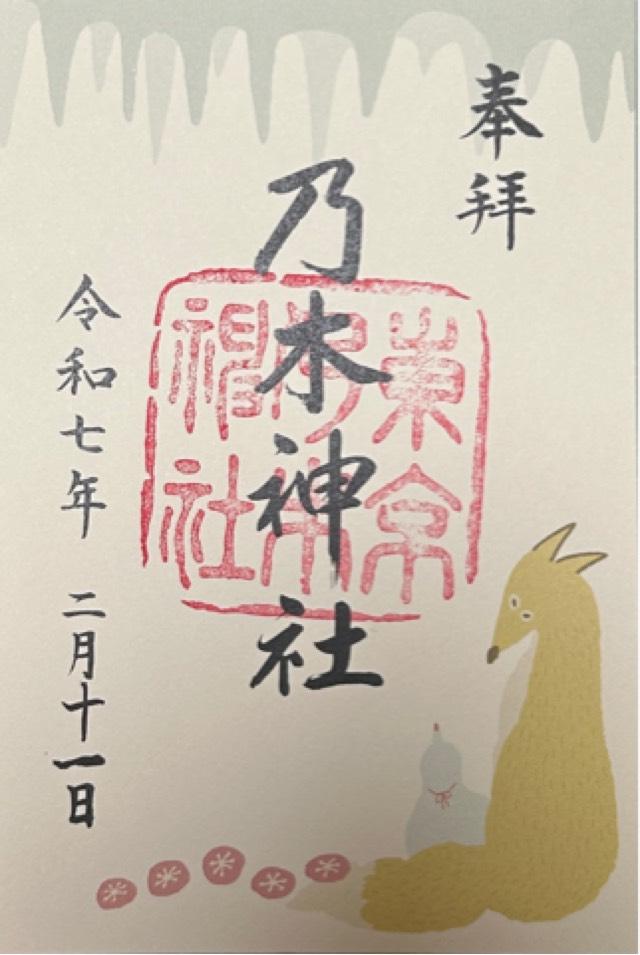 奉拝
乃木神社
東京乃木神社
令和七年 二月十一日